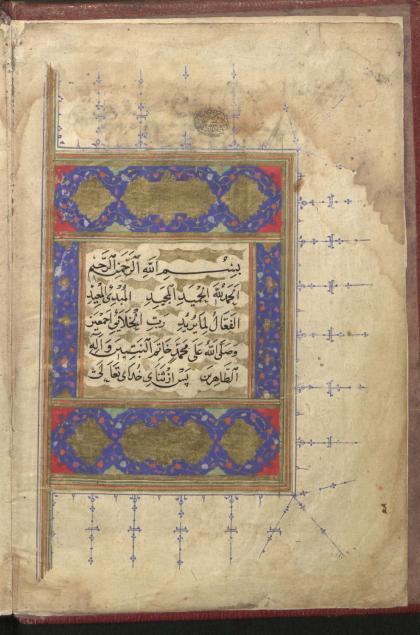 بسم الله الرحمن الرحيم
الحمد لله الحميد المجيد المبدئ المعيد
الفعال لما يريد رب الخلائق اجمعين
وصلى الله على محمد خاتم النبيين وآله
الطاهرين پس از ثنای خدای تعالی